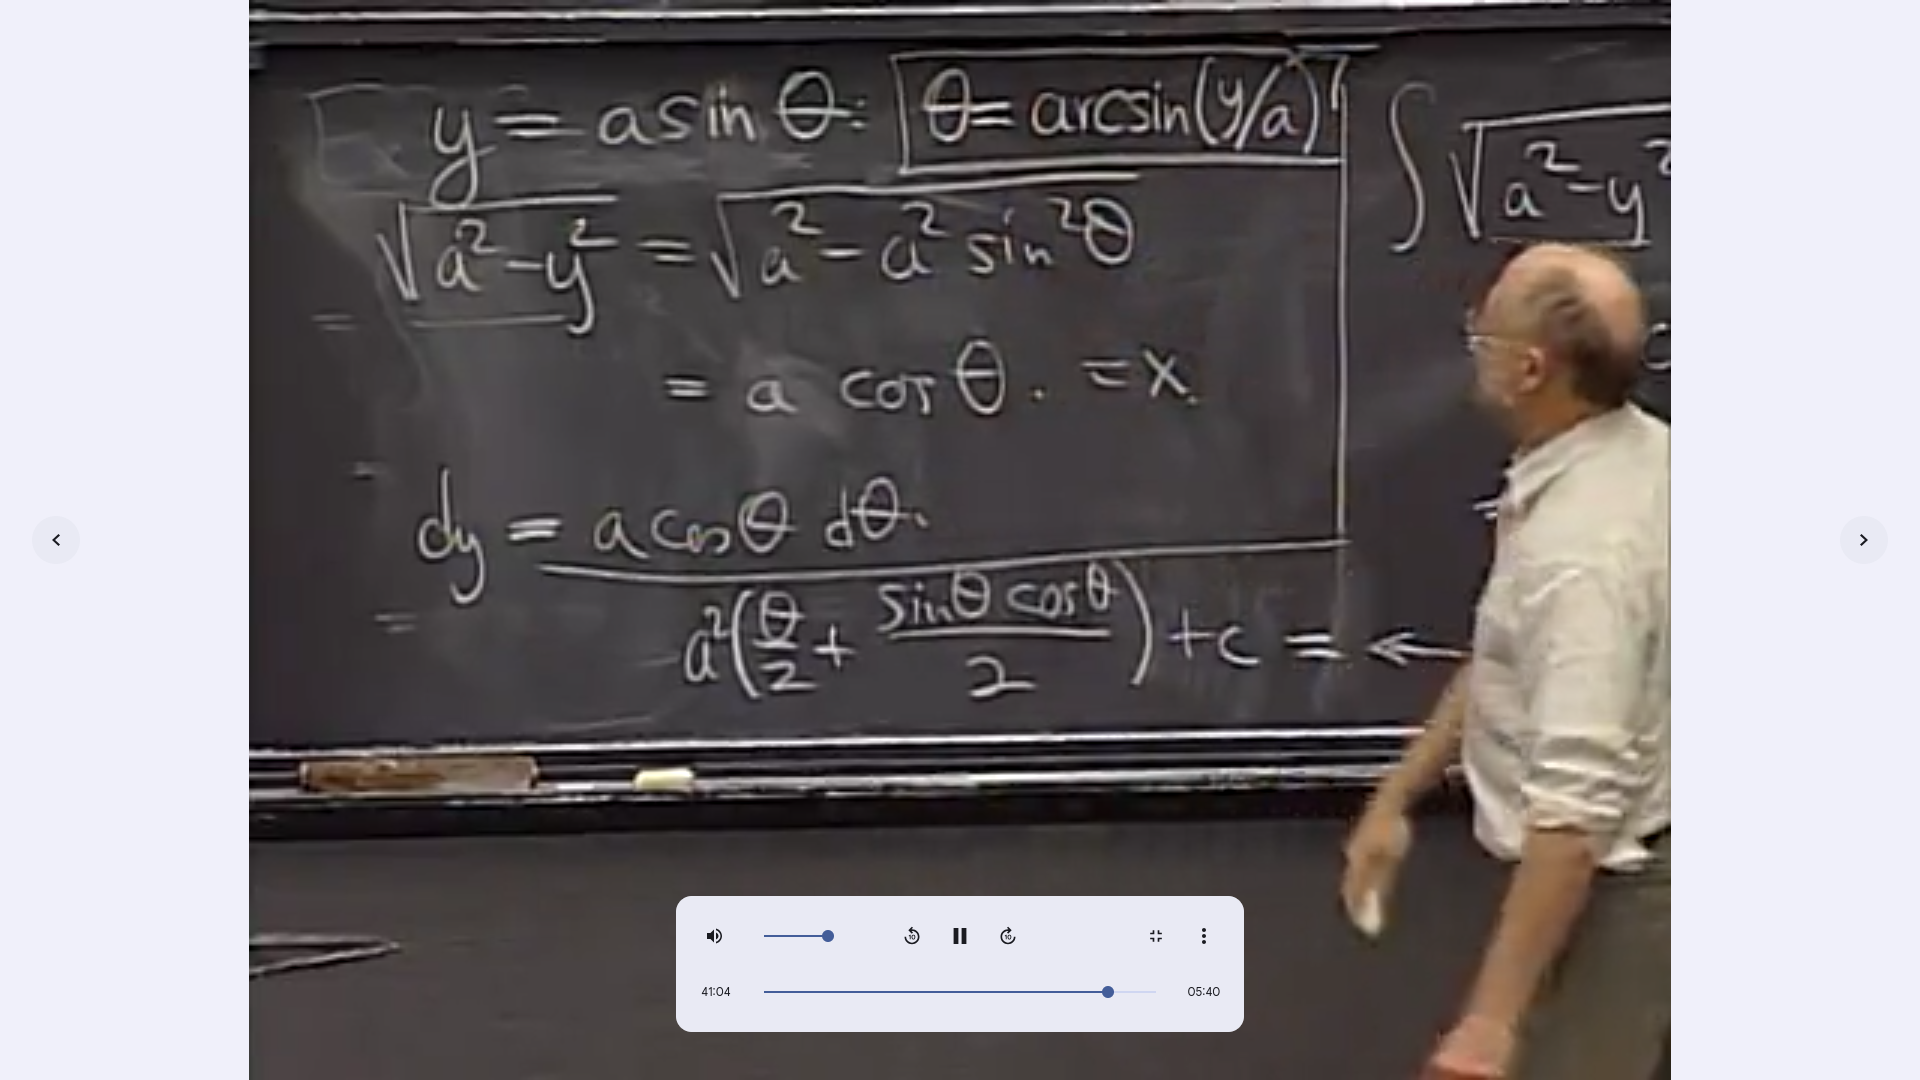 y = a sin θ: θ = arcsin(y/a)
√(a²-y²) = √(a² - a² sin²θ)
= a cos θ. = x.
dy = a cos θ dθ.
a²(θ/2 + sin θ cos θ/2) + c = ←
∫√(a²-y²
41:04
05:40